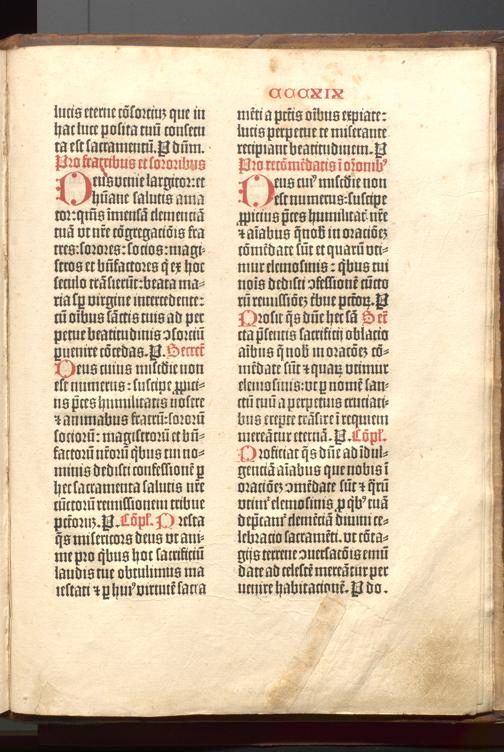 CCCXIX
lucis eterne cōsorciū que in
hac luce posita tuū consecu
ta est sacramentū. P dn̄m.
Pro fratribus et sororibus
Deus venie largitor: et
hūane salutis ama
tor: qm̄s īmensā clemenciā
tuā vt nr̄e cōgregaciōis fra
tres: sorores: socios: magi-
stros et bn̄factores q̄ ex hoc
seculo trāsierūt: beata ma-
ria sp̄ virgine intercedente:
cū oībus sāctis tuis ad per
petue beatitudinis ↄsorciū
ꝑuenire cōcedas. P. Secret̄
Deus cuius mīsc̄die non
est numerus: suscipe ꝓpici-
us p̄ces humilitatis nostre
⁊ animabus fratrū: sororū
sociorū: magistrorū et bn̄-
factorū nr̄orū q̄bus tui no-
minis dedisti confessionē ꝑ
hec sacramenta salutis nr̄e
cūctorū remissionem tribue
pctōruꝫ. P. Cōpl̄. Presta
q̄s misericors deus vt ani-
me pro q̄bus hoc sacrificiū
laudis tue obtulimus ma
iestati ⁊ ꝑ huiꝰ virtutē sacra
mēti a pctīs oībus expiate:
lucis perpetue te miserante
recipiant beatitudinem. P
Pro recōmēdatis ī orōnibꝰ
Deus cuiꝰ mīsc̄die non
est numerus: suscipe
ꝓpicius p̄ces humilitat̄ nr̄e
⁊ aīabus q̄ nob̄ in oracōeꝫ
cōmēdate sūt et quarū vti-
mur elemosinis: q̄bus tui
noīs dedisti ↄfessionē cūcto
rū remissiōeꝫ t̄bue pctōꝝ. P
Prosit q̄s dn̄e hec sā Secr̄
cta p̄sentis sacrificij oblacio
aībus q̄ nob̄ in oracōeꝫ cō-
mēdate sūt ⁊ quaꝝ vtimur
elemosinis: vt ꝑ nomē san-
ctū tuū a perpetuis cruciati-
bus erepte trāsire ī requiem
mereātur eternā. P. Cōpl̄.
Proficiat q̄s dn̄e ad īdul-
genciā aīabus que nobis ī
oracōeꝫ ↄmēdate sūt ⁊ q̄rū
vtimr̄ elemosinis ꝓ q̄bꝰ tuā
dep̄camr̄ clemēciā diuini ce-
lebracio sacramēti. vt cōta-
gijs terrene ↄuersacōis emū
date ad celestē mereātur per
uenire habitacionē. P do.